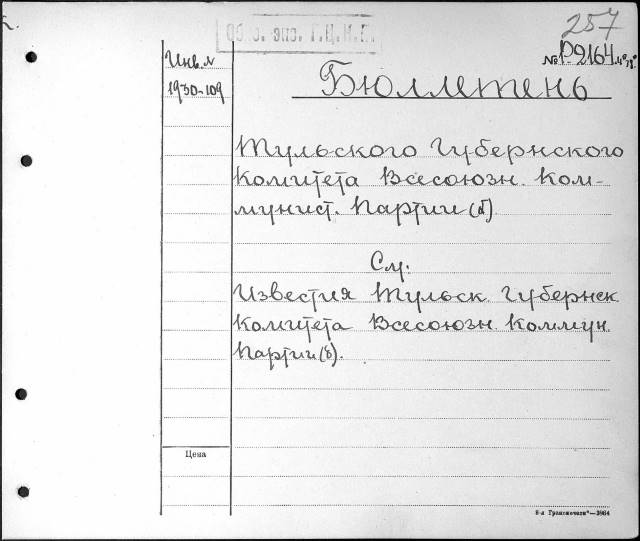 257
Инв. №
1930-109
№ Р-2164
Бюллетень
Тульского Губернского
Комитета Всесоюзн. Ком-
мунист. Партии (б)
См:
Известия Тульск. Губернск.
Комитета Всесоюзн. Коммун.
Партии (б).
Цена